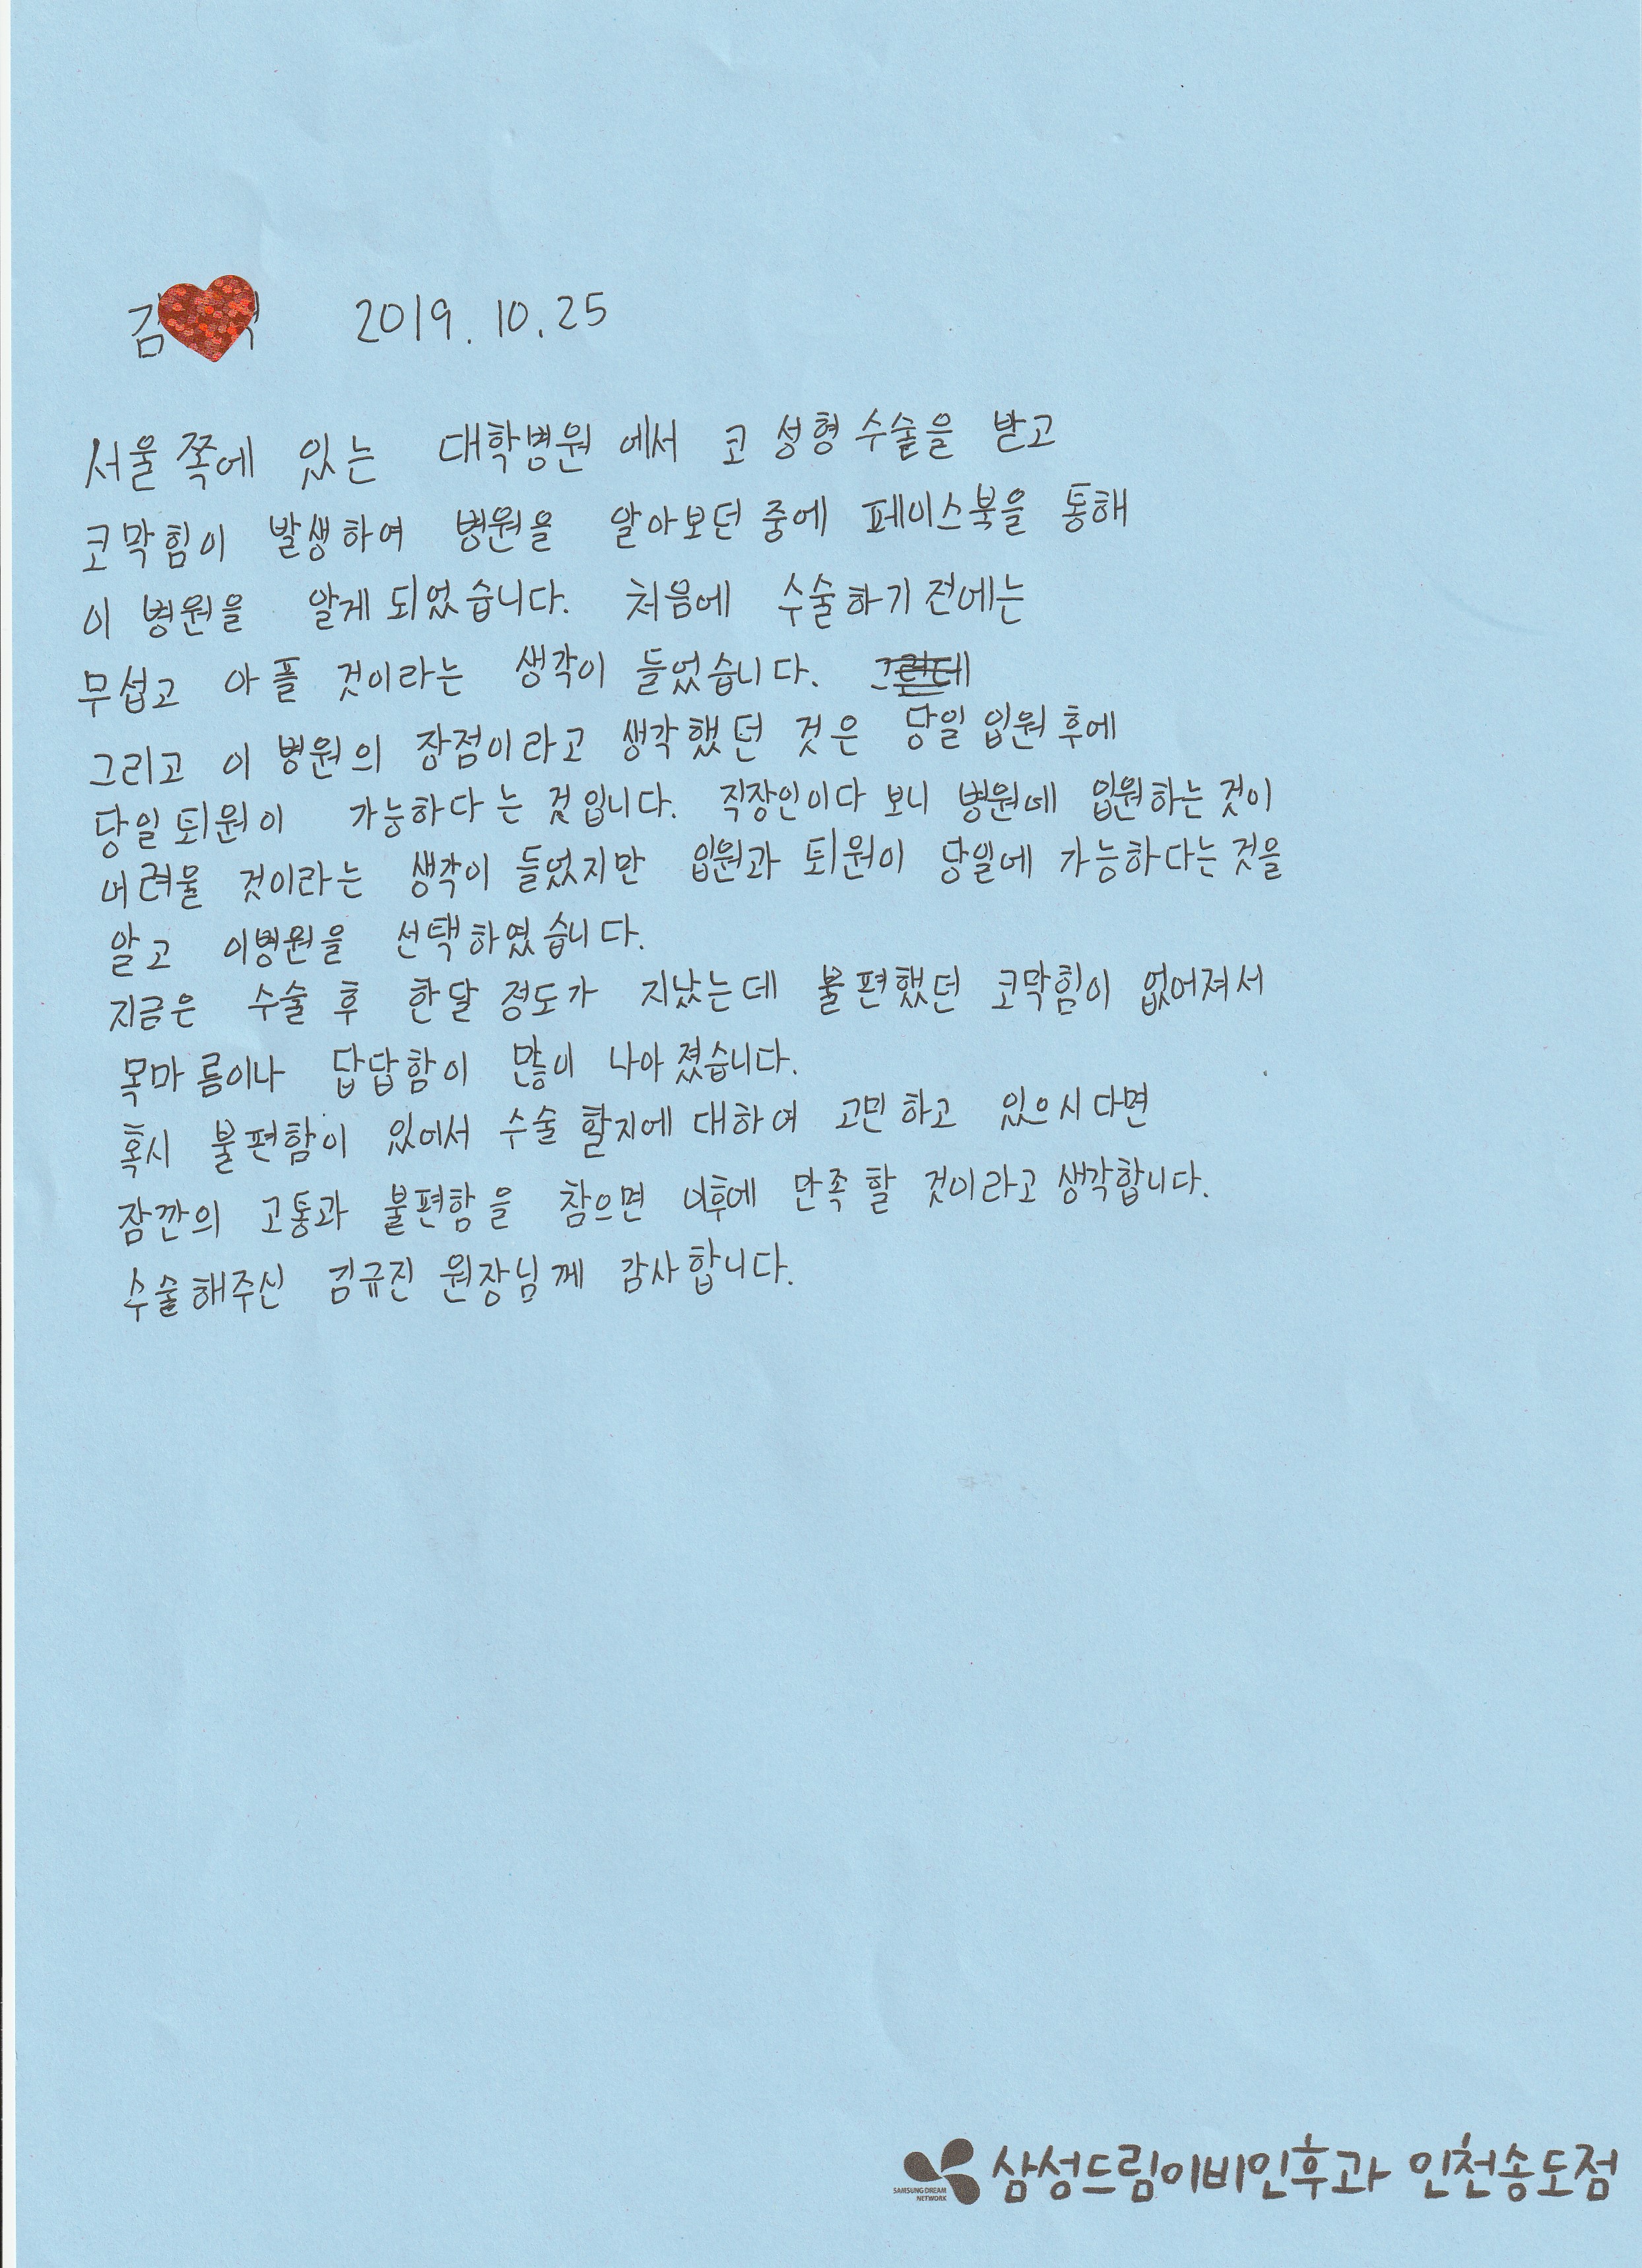 김 2019. 10. 25
서울 쪽에 있는 대학병원 에서 코 성형 수술을 받고
코막힘이 발생하여 병원을 알아보던 중에 페이스북을 통해
이 병원을 알게 되었습니다. 처음에 수술하기 전에는
무섭고 아플 것이라는 생각이 들었습니다.
그리고 이 병원의 장점이라고 생각했던 것은 당일 입원 후에
당일 퇴원이 가능하다는 것입니다. 직장인이다 보니 병원에 입원하는 것이
어려울 것이라는 생각이 들었지만 입원과 퇴원이 당일에 가능하다는 것을
알고 이병원을 선택하였습니다.
지금은 수술 후 한달 정도가 지났는데 불편했던 코막힘이 없어져서
목마름이나 답답함이 많이 나아졌습니다.
혹시 불편함이 있어서 수술 할지에 대하여 고민하고 있으시다면
잠깐의 고통과 불편함을 참으면 이후에 만족 할 것이라고 생각합니다.
수술해주신 김규진 원장님께 감사합니다.
SAMSUNG DREAM NETWORK 삼성드림이비인후과 인천송도점